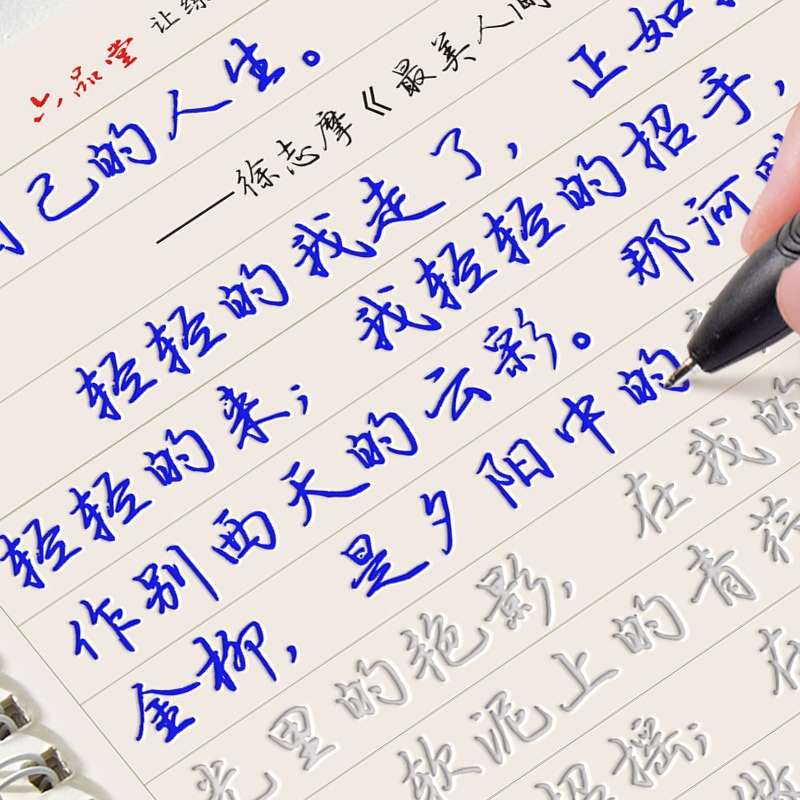 六品堂 让练
己的人生。
——徐志摩《最美人间
轻轻的我走了， 正如
轻轻的来； 我轻轻的招手，
作别西天的云彩。 那河
金柳， 是夕阳中的
光里的艳影， 在我的
软泥上的青荇
招摇； 在
做